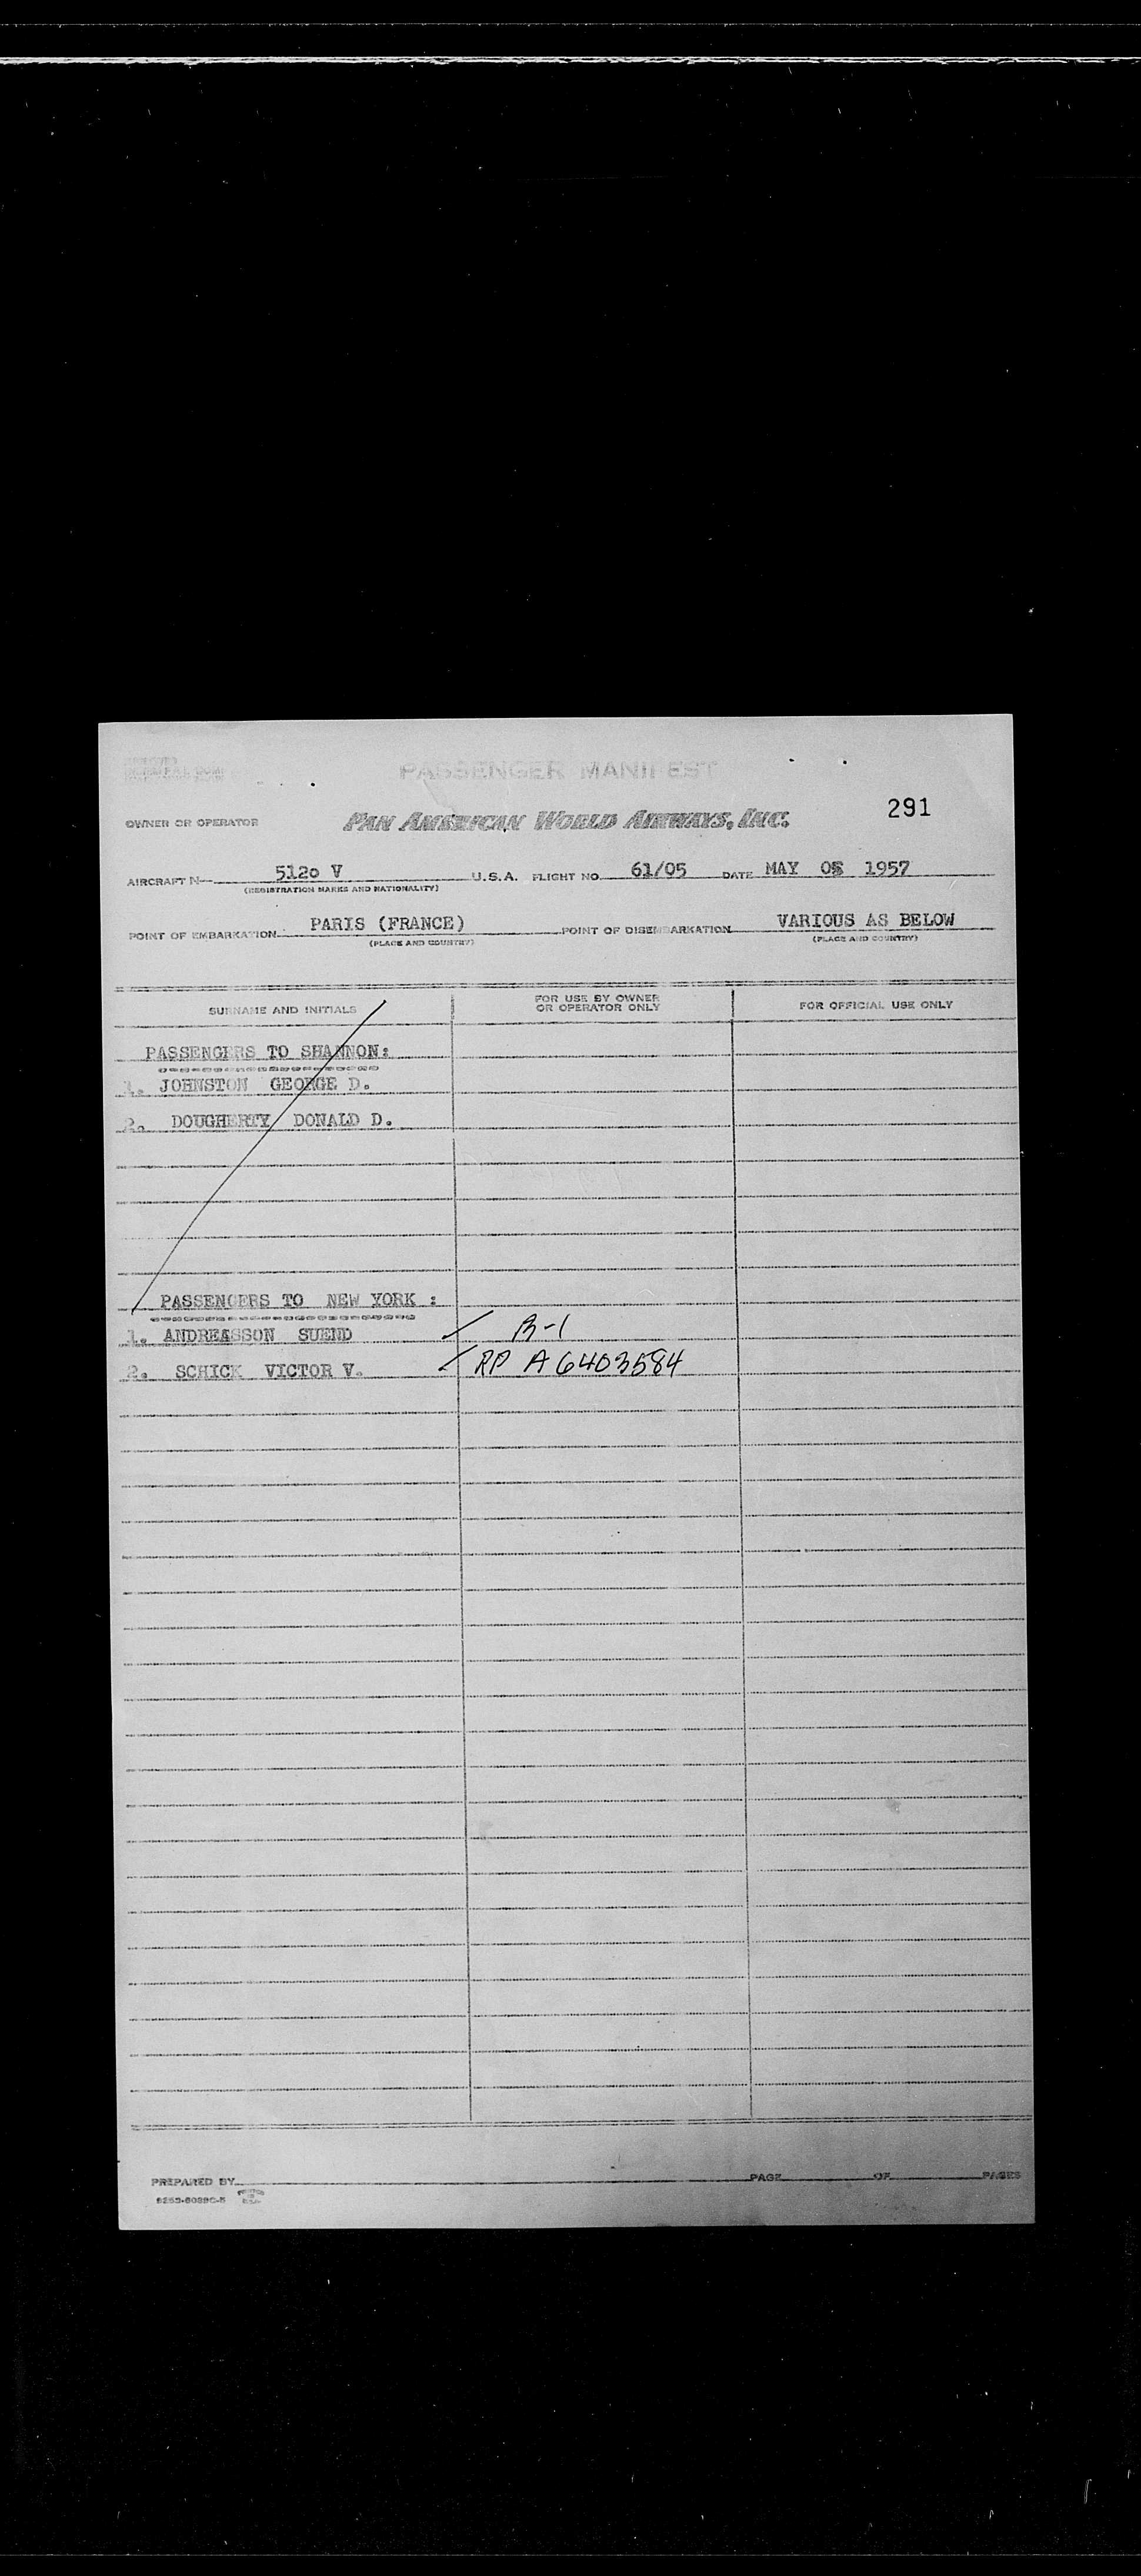 PASSENGER MANIFEST
OWNER OR OPERATOR PAN AMERICAN WORLD AIRWAYS, INC. 291
AIRCRAFT N— 5120 V U.S.A. FLIGHT NO. 61/05 DATE MAY 05 1957
(REGISTRATION MARKS AND NATIONALITY)
POINT OF EMBARKATION PARIS (FRANCE) POINT OF DISEMBARKATION VARIOUS AS BELOW
(PLACE AND COUNTRY) (PLACE AND COUNTRY)
SURNAME AND INITIALS FOR USE BY OWNER OR OPERATOR ONLY FOR OFFICIAL USE ONLY
PASSENGERS TO SHANNON:
1. JOHNSTON GEORGE D.
2. DOUGHERTY DONALD D.
PASSENGERS TO NEW YORK :
1. ANDREASSON SUEND ✓ B-1
2. SCHICK VICTOR V. ✓ RP A6403584
PREPARED BY PAGE OF PAGES